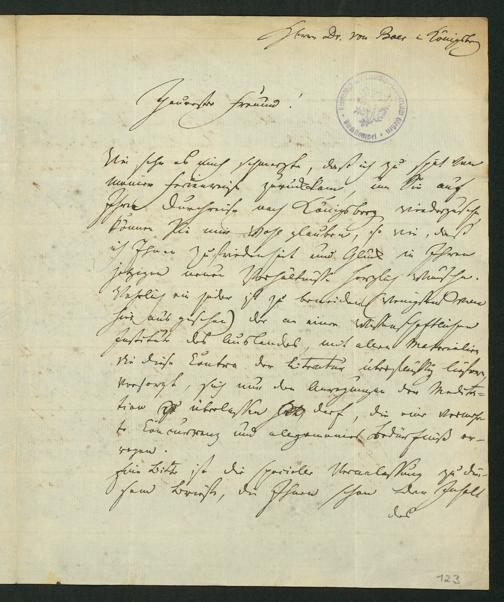 Herrn Dr. von Baer in Königsberg
Theuerster Freund!
Wie sehr es mich schmerzte, daß ich zu spät von
meiner Ferienreise zurückkam, um Sie auf
Ihrer Durchreise nach Königsberg wiederzusehen,
können Sie mir wohl glauben, so wie, daß
ich Ihnen Zufriedenheit und Glück in Ihren
jetzigen neuen Verhältnissen herzlich wünsche.
Wahrlich ein jeder ist zu beneiden (wenigstens von
hier aus gesehen) der an einem Wissenschaftlichen
Institute des Auslandes, mit allen Materialien
die diese der Literatur überflüssig liefern
versorgt, sich nur den Anregungen der Medita-
tion zu überlassen darf, die eine
te Concurrenz und allgemeines Bedürfniß er-
regen.
Eine Bitte ist die specielle Veranlassung zu die-
sem Briefe, die Ihnen schon der Inhalt
des
123